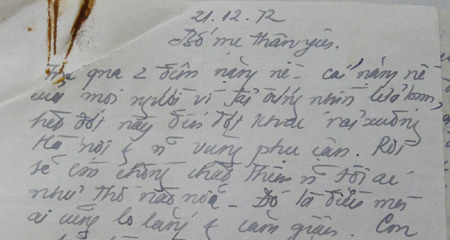 21.12.72
Bố mẹ thân yêu.
qua 2 đêm nặng nề - cái nặng nề
của mọi người vì phải đứng nhìn lũ bom,
hết đợt này đến đợt khác rải xuống
Hà Nội & n vùng phụ cận. Rồi
sẽ còn chồng chất thêm n tội ác
như thế nào nữa - Đó là điều mà
ai cũng lo lắng & căm giận. Con